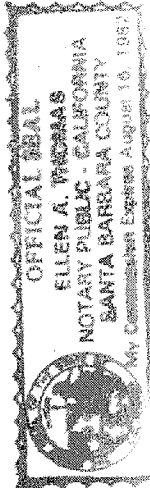 OFFICIAL SEAL
ELLEN A. THOMAS
NOTARY PUBLIC - CALIFORNIA
SANTA BARBARA COUNTY
My Commission Expires August 10,